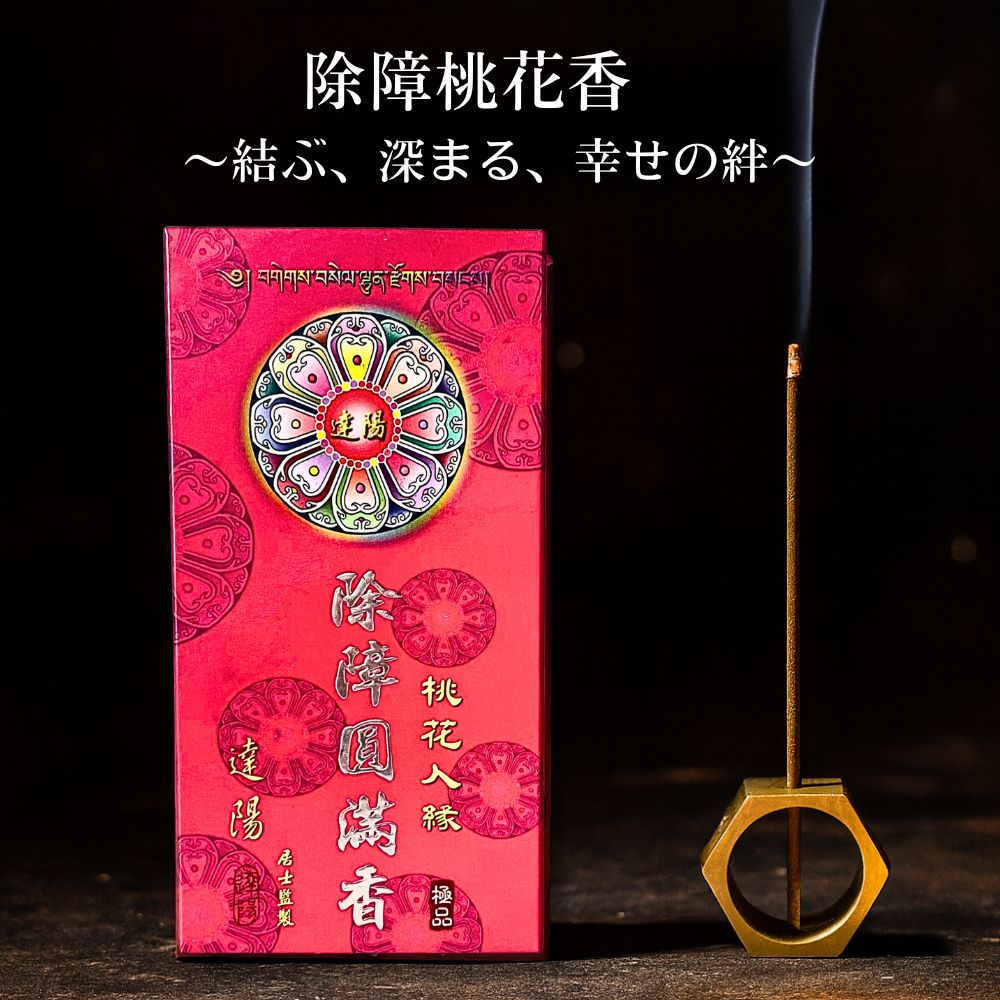 除障桃花香
～結ぶ、深まる、幸せの絆～
༄༅། བགེགས་བསེལ་ལྷུན་རྫོགས་བསང༌།
達陽
除障圓滿香
桃花人緣
極品
達陽
居士監製